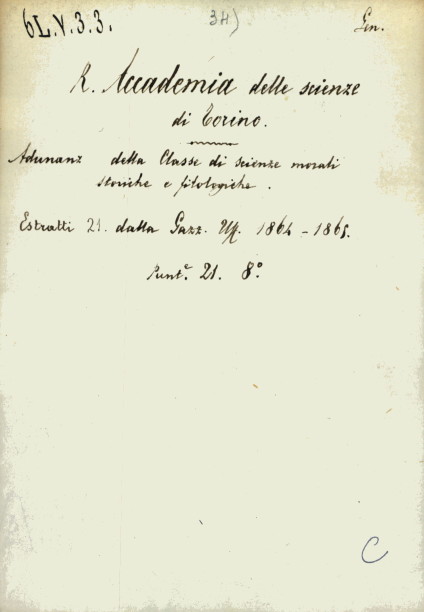 6L.V.3.3.
34)
Gen.
R. Accademia delle scienze
di Torino.
Adunanz della Classe di scienze morali
storiche e filologiche.
Estratti 21. dalla Gazz. Uff. 1864-1865.
Punt.e 21. 8°.
C